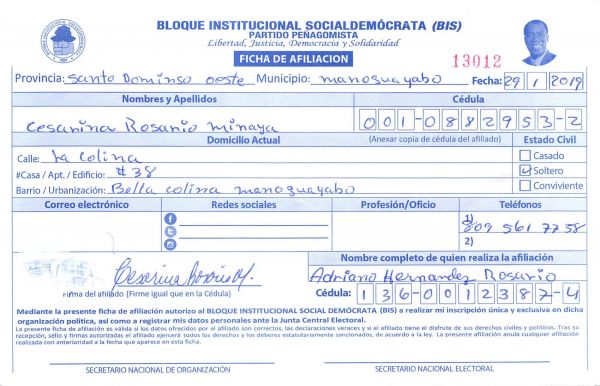 BLOQUE INSTITUCIONAL SOCIALDEMÓCRATA (BIS)
PARTIDO PEÑAGOMISTA
Libertad, Justicia, Democracia y Solidaridad
FICHA DE AFILIACION
13012
Provincia: Santo Dominso oeste Municipio: manoguayabo Fecha: 29/1/2019
Nombres y Apellidos Cédula
Cesarina Rosario Minaya 001-0882953-2
Domicilio Actual (Anexar copia de cédula del afiliado) Estado Civil
Calle: La Colina Casado
#Casa / Apt. / Edificio: #38 Soltero
Barrio / Urbanización: Bella colina manoguayabo Conviviente
Correo electrónico Redes sociales Profesión/Oficio Teléfonos
1) 809 561 7758
2)
Nombre completo de quien realiza la afiliación
Adriano Hernandez Rosario
Firma del afiliado (Firme igual que en la Cédula) Cédula: 136-0012387-4
Mediante la presente ficha de afiliación autorizo al BLOQUE INSTITUCIONAL SOCIAL DEMÓCRATA (BIS) a realizar mi inscripción única y exclusiva en dicha
organización política, así como a registrar mis datos personales ante la Junta Central Electoral.
La presente ficha de afiliación es válida si los datos ofrecidos por el afiliado son correctos, las declaraciones veraces y si el afiliado tiene el disfrute de sus derechos civiles y políticos. Tras su
recepción, sello y firmas autorizadas el afiliado ejercerá todos los derechos y los deberes estatutariamente sancionados, de acuerdo a la ley. La presente afiliación anula cualquier afiliación
realizada con anterioridad a la fecha que aparece en esta ficha.
SECRETARIO NACIONAL DE ORGANIZACIÓN SECRETARIO NACIONAL ELECTORAL